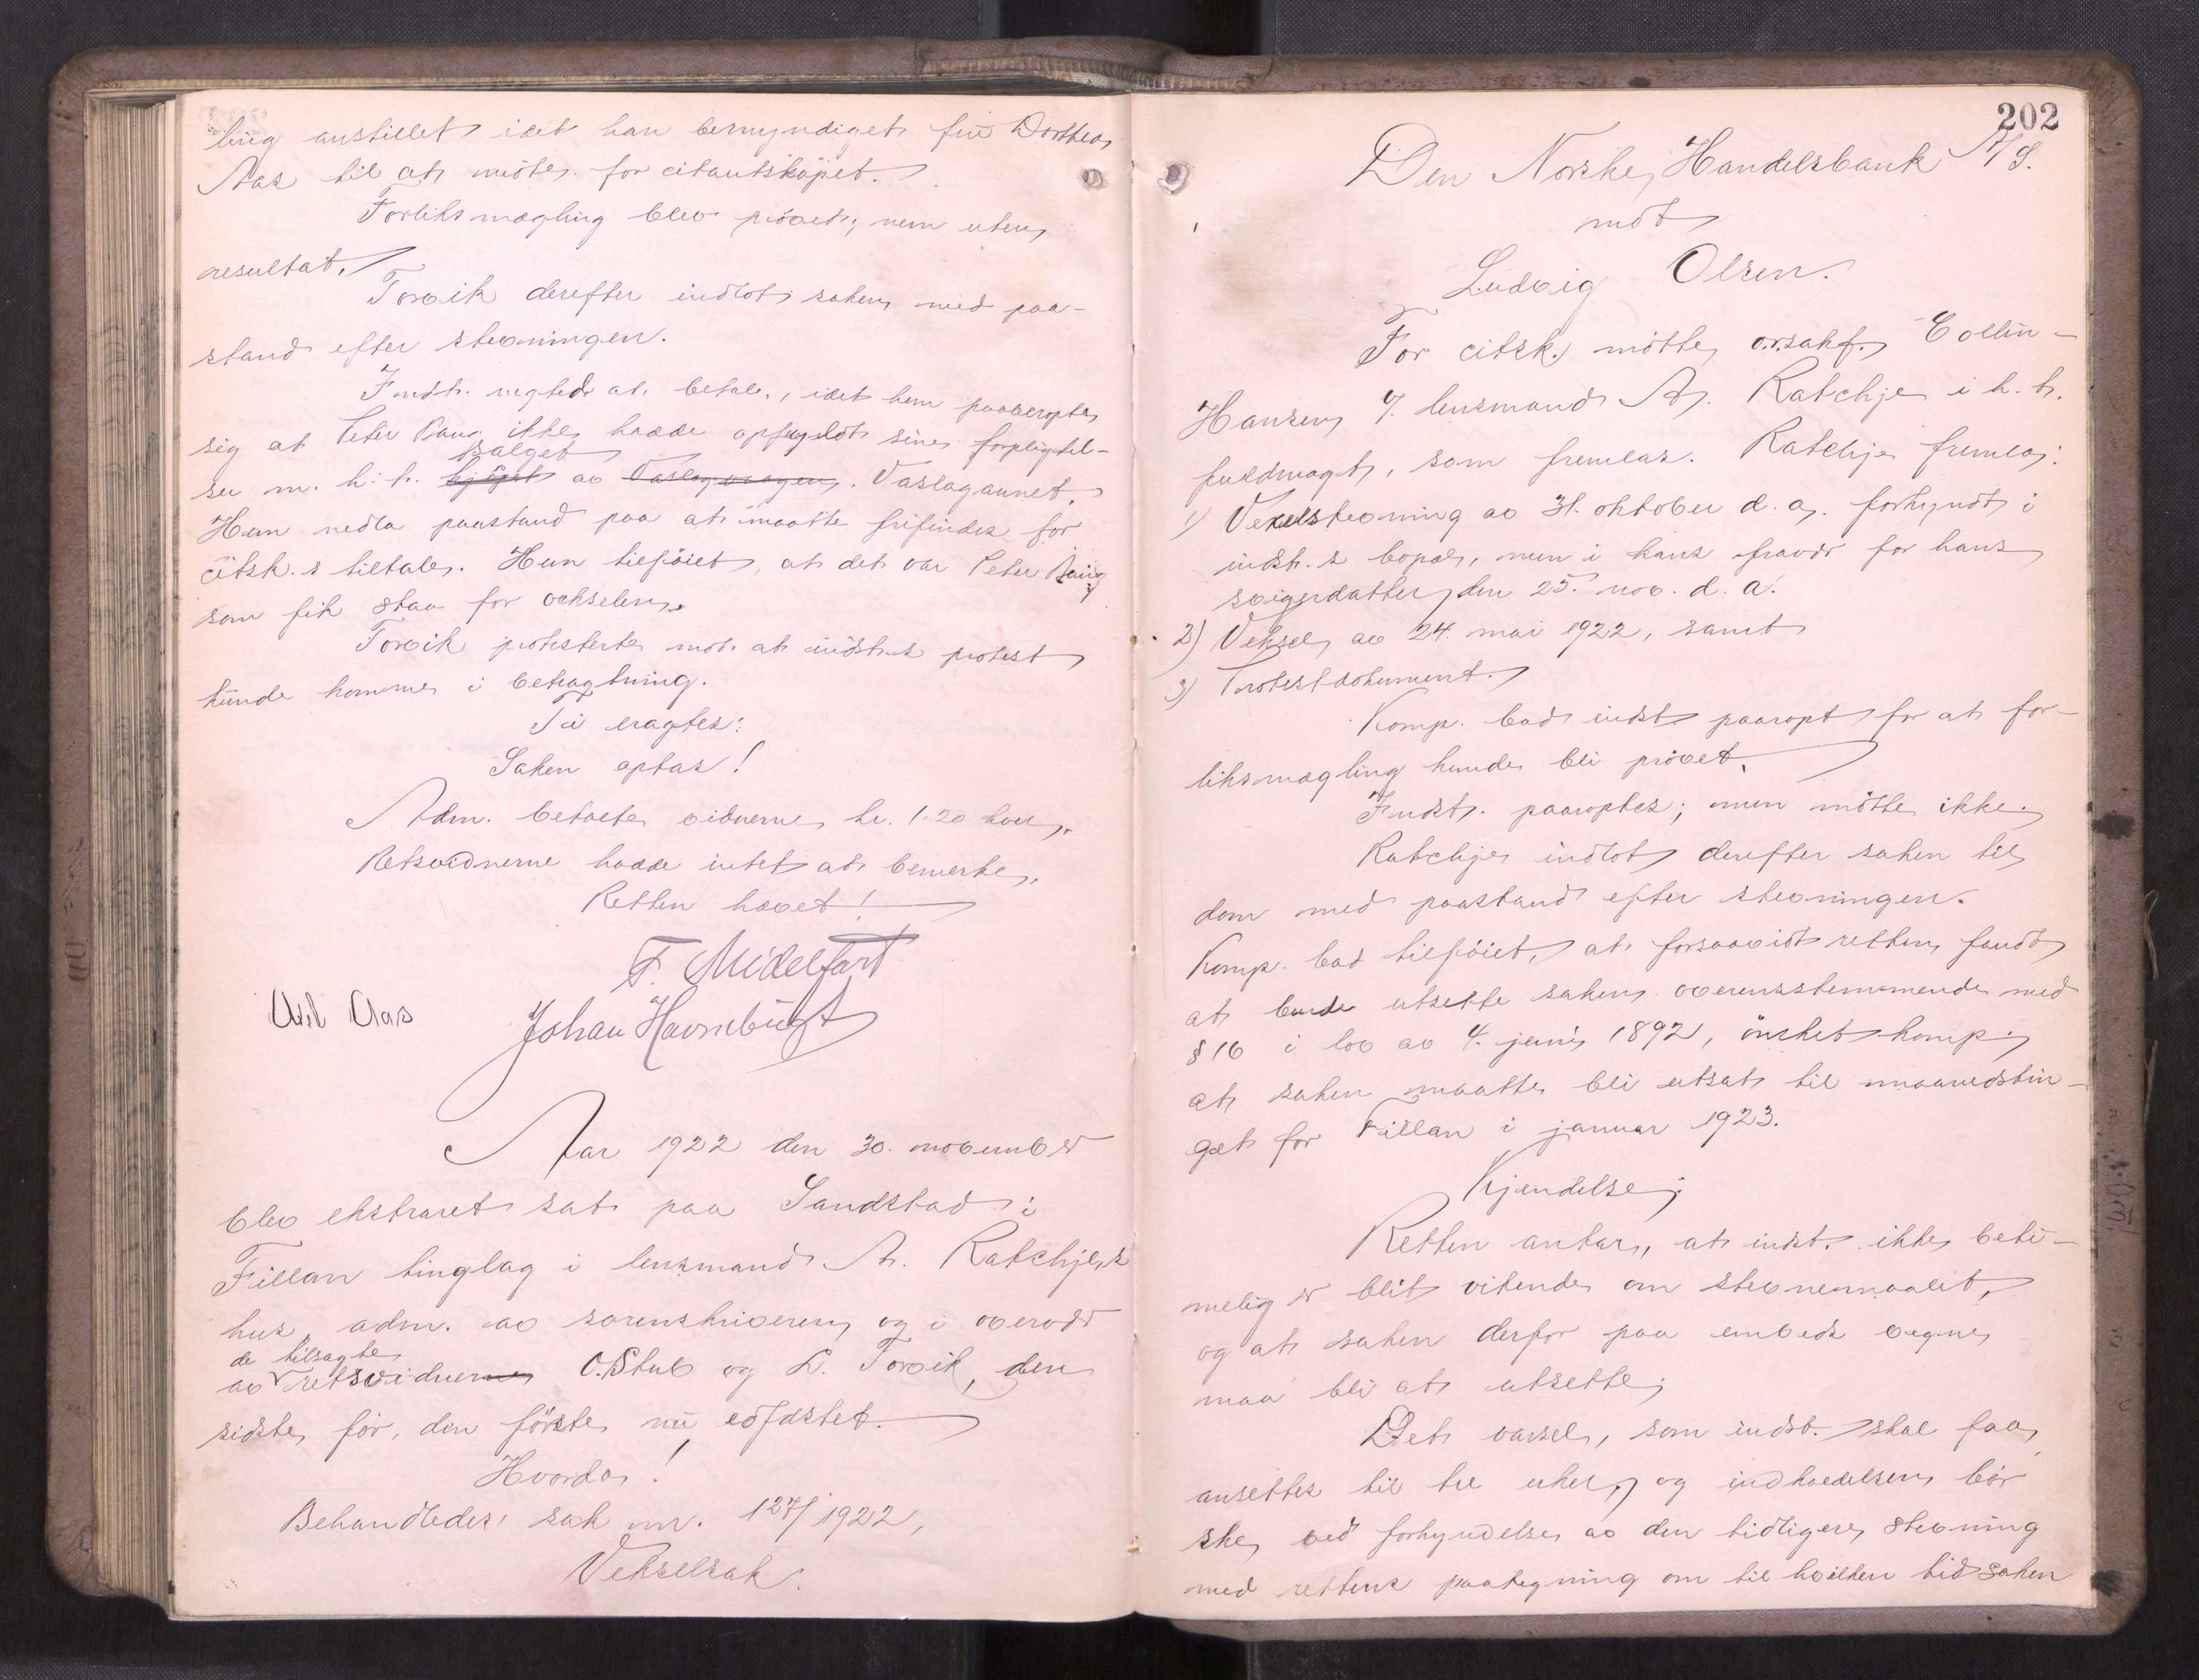 lig anstillet idet han bemyndiget fru Dorthea
Aas til at møte for citantskapet.
Forliksmægling blev prövet; men uten
resultat.
Torvik derefter indlot saken med paa-
stand efter stevningen.
Indst. negtede at betale, idet hun paaberopte
sig at Peter ikke hadde opfyldt sine forpligtel-
salget
ser m. h. t. kjöpet av Vaslagvaagen. Vaslagaunet.
Hun nedla paastand paa at maatte frifindes for
citsk.s tiltale. Hun tilföiet, at det var Peter
som fik staa for vekselen.
Torvik protesterte mot at indst.s protest
kunde komme i betragtning.
Ti eragtes:
Saken optas!
Adm. betalte vidnerne kr. 1.20 hver.
Retsvidnerne hadde intet at bemerke.
Retten hævet!
F. Midelfart
Aas Johan Havnebugt
Aar 1922 den 30. november
blev ekstraret sat paa Sandstad i
Fillan tinglag i lensmand A. Ratchjes
hus adm. av sorenskriveren og i overvær
de tilsagte
av retsvidnerne O. Stub og L. Torvik, den
sidste för, den förste nu edfæstet.
Hvorda!
Behandledes sak nr. 127/1922,
Vekselsak.
202
Den Norske Handelsbank A/S.
mot
Ludvig Olsen.
For citsk. mötte o.r.sakf. Collin-
Hansen v. lensmand A. Ratchje i h. t.
fuldmagt, som fremlas. Ratchje fremla:
1) Vexelstevning av 31. oktober d. a. forkyndt i
indst.s bopæl, men i hans fravær for hans
svigerdatter den 25. nov. d. a.
2) Veksel av 24. mai 1922, samt
3) Protestdokument.
Komp. bad indst paaropt for at for-
liksmægling kunde bli prövet.
Indst. paaroptes; men mötte ikke.
Ratchje indlot derefter saken til
dom med paastand efter stevningen.
Komp. bad tilföiet, at forsaavidt retten fandt
at burde utsette saken overensstemmende med
§ 16 i lov av 4. juni 1892, önsket komp.
at saken maatte bli utsat til maanedstin-
get for Fillan i januar 1923.
Kjendelse:
Retten antar, at indst. ikke beti-
melig er blit vitende om stevnemaalet,
og at saken derfor paa embeds vegne
maa bli at utsette.
Det varsel, som indst. skal faa,
ansettes til tre uker, og indkaldelsen bör
ske ved forkyndelse av den tidligere stevning
med rettens paategning om til hvilken tid saken